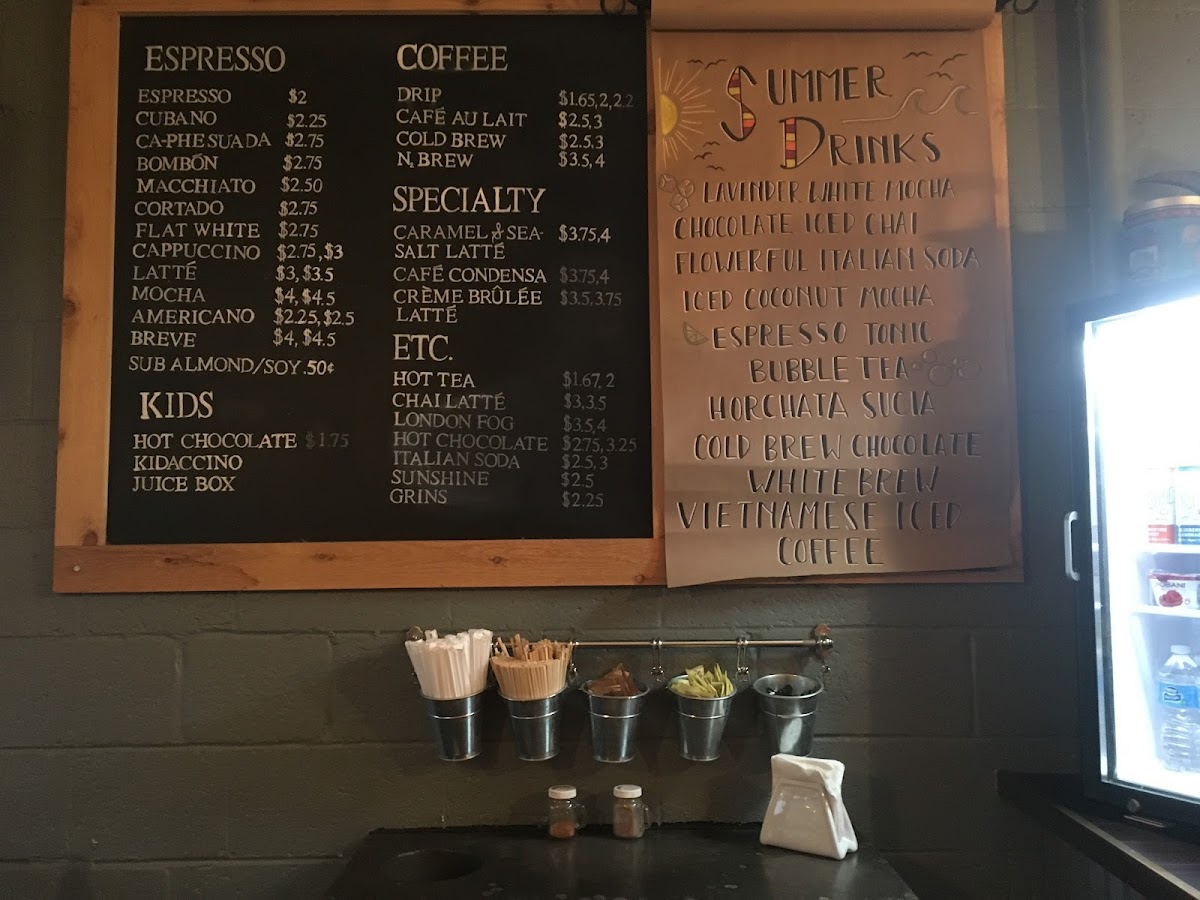 ESPRESSO
ESPRESSO $2
CUBANO $2.25
CA-PHE SUA DA $2.75
BOMBÓN $2.75
MACCHIATO $2.50
CORTADO $2.75
FLAT WHITE $2.75
CAPPUCCINO $2.75, $3
LATTÉ $3, $3.5
MOCHA $4, $4.5
AMERICANO $2.25, $2.5
BREVE $4, $4.5
SUB ALMOND/SOY .50¢
KIDS
HOT CHOCOLATE $1.75
KIDACCINO
JUICE BOX
COFFEE
DRIP $1.65, 2, 2.2
CAFÉ AU LAIT $2.5, 3
COLD BREW $2.5, 3
N₂ BREW $3.5, 4
SPECIALTY
CARAMEL & SEA- $3.75, 4
SALT LATTÉ
CAFÉ CONDENSA $3.75, 4
CRÈME BRÛLÉE $3.5, 3.75
LATTÉ
ETC.
HOT TEA $1.67, 2
CHAI LATTÉ $3, 3.5
LONDON FOG $3.5, 4
HOT CHOCOLATE $2.75, 3.25
ITALIAN SODA $2.5, 3
SUNSHINE $2.5
GRINS $2.25
SUMMER
DRINKS
LAVENDER WHITE MOCHA
CHOCOLATE ICED CHAI
FLOWERFUL ITALIAN SODA
ICED COCONUT MOCHA
ESPRESSO TONIC
BUBBLE TEA
HORCHATA SUCIA
COLD BREW CHOCOLATE
WHITE BREW
VIETNAMESE ICED
COFFEE